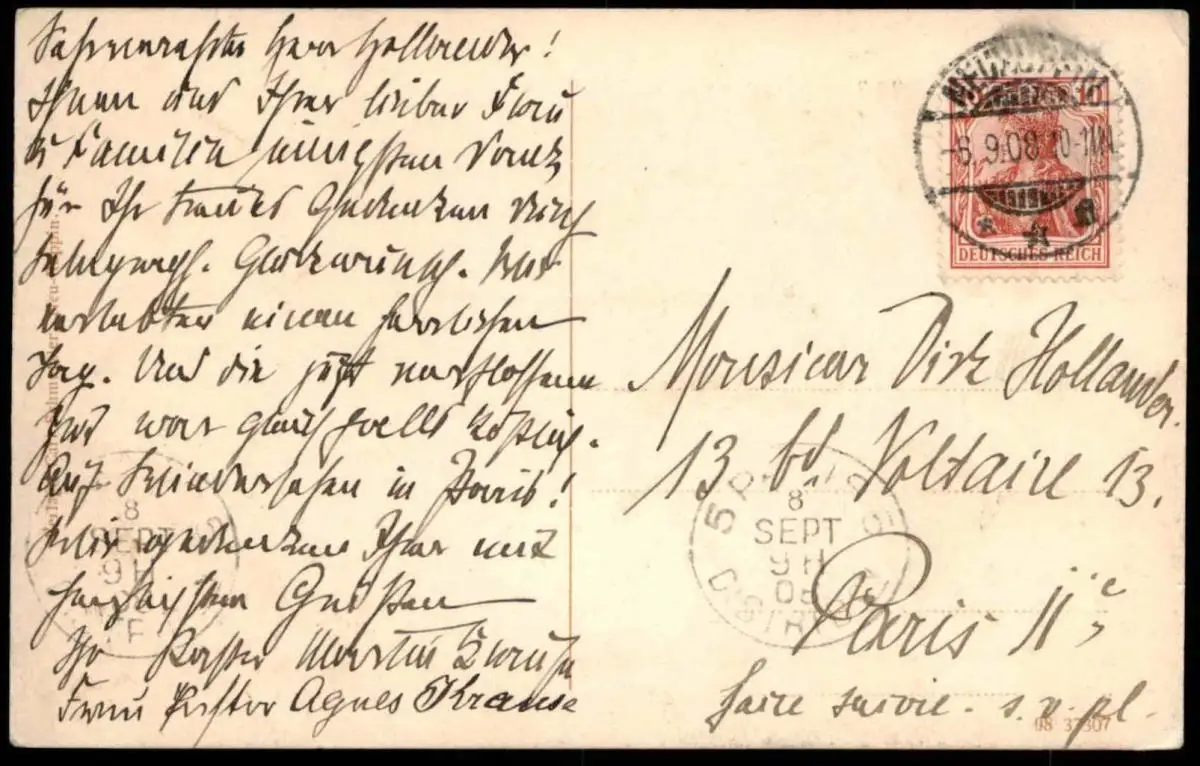 Sehr verehrter Herr Hollander!
Ihnen und Ihrer lieben Frau
u Familien innigsten Dank
für Ihr treues Gedenken durch
telegraph. Glückwunsch. Wir
verlebten einen herrlichen
Tag. Und die jetzt verflossene
Zeit war gleichfalls köstlich.
Auf Wiedersehen in Paris!
Wir gedenken Ihrer mit
herzlichsten Grüßen
Ihr Pastor Martin Krause
Frau Pastor Agnes Krause
-6.9.08.10-11V.
10 10
DEUTSCHES REICH
Monsieur Dirk Hollander.
13 bd Voltaire 13.
Paris 11e
faire suivre. s. v. pl.
8
SEPT
9H
08
DISTRI
8
SEPT
9H
98 37307